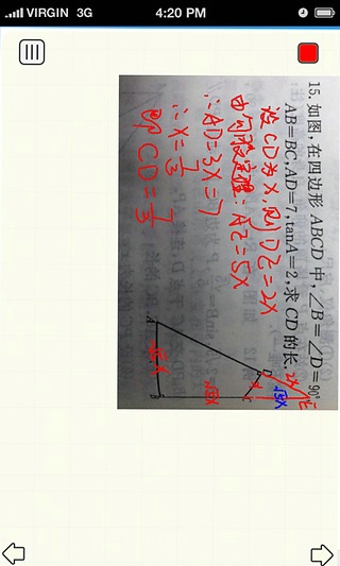 VIRGIN 3G
4:20 PM
15. 如图,在四边形 ABCD 中,∠B=∠D=90°
AB=BC,AD=7,tanA=2,求 CD 的长.
设 CD为 X,则 DE=2X
由勾股定理: AE=5X
∴AD=3X=7
∴X=7/3
即 CD=7/3
A
B
C
D
E
2X
√5X
X
√5X
√5X